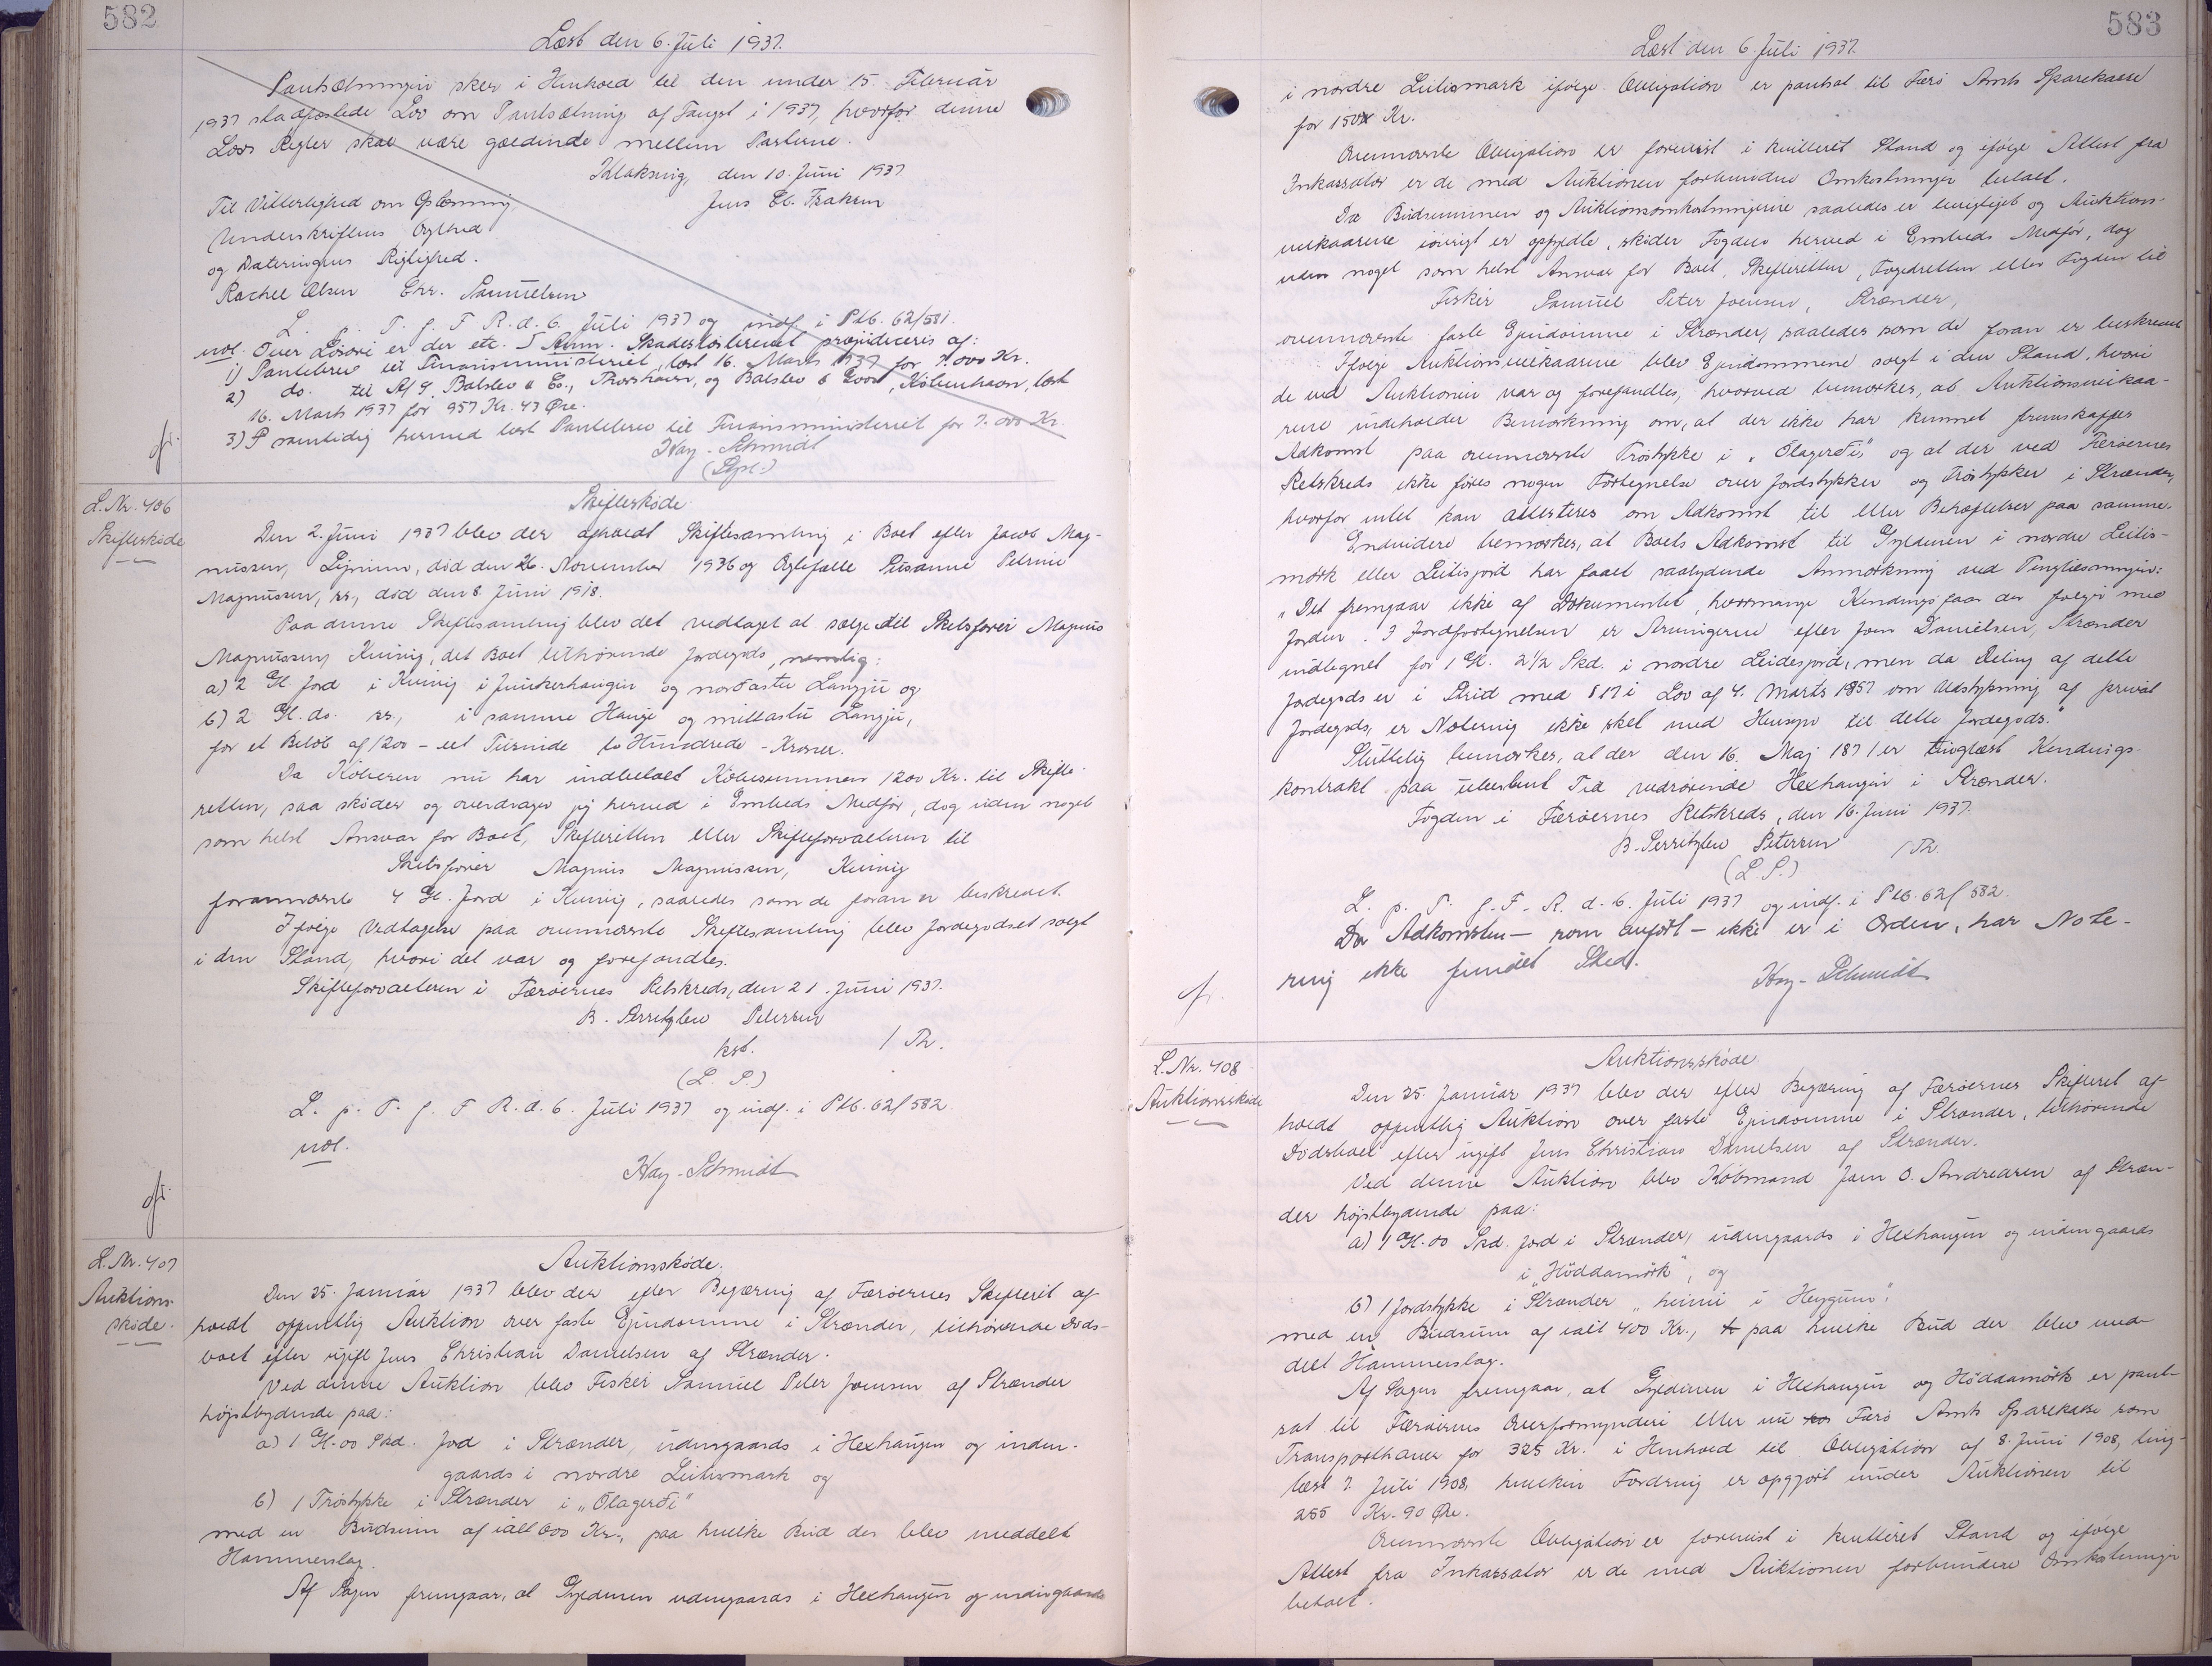 582
Læst den 6. Juli 1937.
Pantsætningen sker i Henhold til den under 15. Februar
1937 stadfæstede Lov om Pantsætning af Fangst i 1937, hvorfor denne
Lovs Regler skal være gældende mellem Parterne.
Klaksvig, den 10. Juni 1937
Til Vitterlighed om Oplæsning, Jens Isaksen
Underskriftens Ægthed
og Dateringens Rigtighed.
Rachel Olsen Chr. Samuelsen
L. p. T. f. F. R. d. 6. Juli 1937 og indf. i Ptb. 62/581.
Over Løsøre er der etc. Skadesløsbrevet præjudiceres af:
1) Pantebrev til Finansministeriet, læst 16. Marts 1937 for 7.000 Kr.
2) do. til A/S Balslev & Co., Thorshavn, og Balslev & København, læst
16. Marts 1937 for 957 Kr. 43 Øre.
3) samtidig hermed læst Pantebrev til Finansministeriet for 7.000 Kr.
Hay-Schmidt
L.Nr. 406
Skifteskøde
Skifteskøde.
Den 2. Juni 1937 blev der afholdt Skiftesamling i Boet efter Jacob Mag-
nussen, død den 26. November 1936 og Ægtefælle Susanne Petrine
Magnussen, død den 8. Juni 1918.
Paa denne Skiftesamling blev det vedtaget at sælge til Skibsfører Magnus
Magnussen, Kvivig, det Boet tilhørende Jordegods, nemlig:
a) 2 Gl. Jord i Kvivig i Junkerhaugen og Langju og
b) 2 Gl. do. i samme Hauge og Langju,
for et Beløb af 1200 - eet Tusinde to Hundrede - Kroner.
Da Køberen nu har indbetalt Købesummen 1200 Kr. til Skifte-
retten, saa skøder og overdrager jeg herved i Embeds Medfør, dog uden noget
som helst Ansvar for Boet, Skifteretten eller Skifteforvalteren til
Skibsfører Magnus Magnussen, Kvivig
forannævnte 4 Gl. Jord i Kvivig, saaledes som de foran er beskrevet.
Ifølge Vedtagelse paa ovennævnte Skiftesamling blev Jordegodset solgt
i den Stand, hvori det var og forefandtes.
Skifteforvalteren i Færøernes Retskreds, den 21. Juni 1937.
B. Serritzlew Petersen
kst. / Th.
(L. S.)
L. p. T. f. F. R. d. 6. Juli 1937 og indf. i Ptb. 62/582.
Hay-Schmidt
L.Nr. 407
Auktions-
skøde.
Auktionsskøde.
Den 25. Januar 1937 blev der efter Begæring af Færøernes Skifteret af-
holdt offentlig Auktion over faste Ejendomme i Strænder, tilhørende Døds-
boet efter ugift Jens Christian Danielsen af Strænder.
Ved denne Auktion blev Fisker Samuel Peter Joensen af Strænder
højstbydende paa:
a) 1 Gl. 00 Skd. Jord i Strænder, udengaards i Hexhaugen og inden-
gaards i nordre Leitismark og
b) 1 Trøstykke i Strænder i „Olagerði"
med en Budsum af ialt 600 Kr., paa hvilke Bud der blev meddelt
Hammerslag.
Af Sagen fremgaar, at Gyldenen udengaards i Hexhaugen og indengaards
583
Læst den 6. Juli 1937.
i nordre Leitismark ifølge Obligation er pantsat til Færø Amts Sparekasse
for Kr.
Ovennævnte Obligation er forevist i kvitteret Stand og ifølge Attest fra
Inkassator er de med Auktionen forbundne Omkostninger betalt.
Da Budsummen og Auktionsomkostningerne saaledes er berigtiget og Auktions-
vilkaarene iøvrigt er opfyldte, skøder Fogden herved i Embeds Medfør, dog
uden noget som helst Ansvar for Boet, Skifteretten, Fogedretten eller Fogden til
Fisker Samuel Peter Joensen, Strænder,
ovennævnte faste Ejendomme i Strænder, saaledes som de foran er beskrevet.
Ifølge Auktionsvilkaarene blev Ejendommene solgt i den Stand, hvori
de ved Auktionen var og forefandtes, hvorved bemærkes, at Auktionsvilkaa-
rene indeholder Bemærkning om, at der ikke har kunnet fremskaffes
Adkomst paa ovennævnte Trøstykke i „Olagerði," og at der ved Færøernes
Retskreds ikke føres nogen Fortegnelse over Jordstykker og Trøstykker i Strænder,
hvorfor intet kan attesteres om Adkomst til eller Behæftelser paa samme.
Endvidere bemærkes, at Boets Adkomst til Gyldenen i nordre Leitis-
mørk eller Leitisjord har faaet saalydende Anmærkning ved Tinglæsningen:
„Det fremgaar ikke af Dokumentet, hvormange Kendingsfaar der følger med
Jorden. I Jordfortegnelsen er Arvingerne efter Joen Danielsen, Strænder
indtegnet for 1 Gl. 2 1/2 Skd. i nordre Leidesjord, men da Deling af dette
Jordegods er i Strid med § 17 i Lov af 4. Marts 1857 om Udstykning af privat
Jordegods, er Notering ikke sket med Hensyn til dette Jordegods."
Sluttelig bemærkes, at der den 16. Maj 1871 er tinglæst Kendings-
kontrakt paa ubestemt Tid vedrørende Hexhaugen i Strænder.
Fogden i Færøernes Retskreds, den 16. Juni 1937.
B. Serritzlew Petersen / Th.
(L. S.)
L. p. T. f. F. R. d. 6. Juli 1937 og indf. i Ptb. 62/582.
Da Adkomsten - som anført - ikke er i Orden, har Note-
ring ikke fundet Sted.
Hay-Schmidt
L.Nr. 408
Auktionsskøde
Auktionsskøde.
Den 25. Januar 1937 blev der efter Begæring af Færøernes Skifteret af-
holdt offentlig Auktion over faste Ejendomme i Strænder, tilhørende
Dødsboet efter ugift Jens Christian Danielsen af Strænder.
Ved denne Auktion blev Købmand Joen O. Andreasen af Stræn-
der højstbydende paa:
a) 1 Gl. 00 Skd. Jord i Strænder, udengaards i Hexhaugen og indengaards
i „Høddamørk", og
b) 1 Jordstykke i Strænder „heimi i Heygum".
med en Budsum af ialt 400 Kr., paa hvilke Bud der blev med-
delt Hammerslag.
Af Sagen fremgaar, at Gyldenen i Hexhaugen og Høddamørk er pant-
sat til Færøernes Overformynderi eller nu Færø Amts Sparekasse som
Transporthaver for 325 Kr. i Henhold til Obligation af 8. Juni 1908, ting-
læst 7. Juli 1908, hvilken Fordring er opgjort under Auktionen til
255 Kr. 90 Øre.
Ovennævnte Obligation er forevist i kvitteret Stand og ifølge
Attest fra Inkassator er de med Auktionen forbundne Omkostninger
betalt.